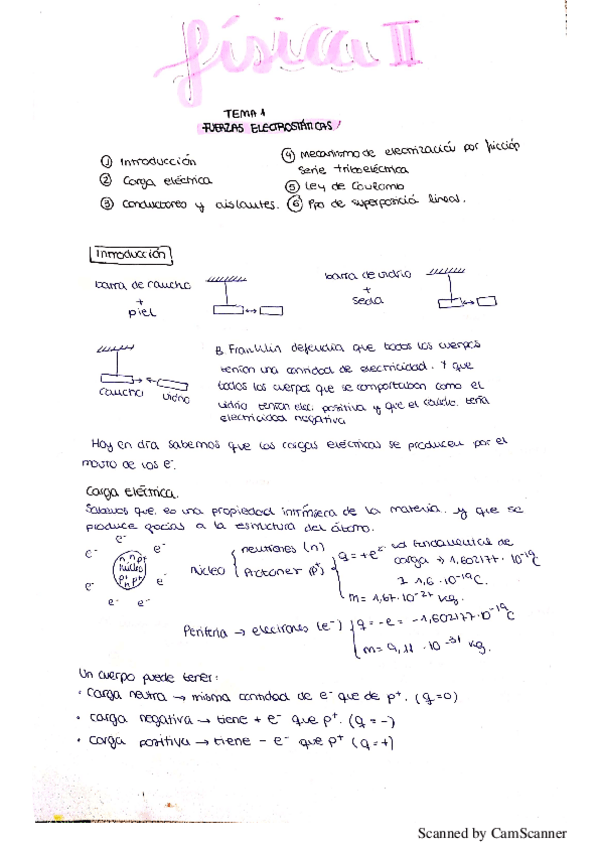 física II
TEMA 1
FUERZAS ELECTROSTÁTICAS
① Introducción
② Carga eléctrica
③ conductores y aislantes.
④ Mecanismo de electrización por fricción
serie triboeléctrica
⑤ Ley de Coulomb
⑥ Ppo de superposició lineal.
Introducción
barra de caucho
+
piel
barra de vidrio
+
seda
caucho
vidrio
B. Franklin defendia que todos los cuerpos
tenían una cantidad de electricidad. Y que
todos los cuerpos que se comportaban como el
vidrio tenían elec. positiva y que el caucho. tenía
electricidad negativa
Hoy en día sabemos que las cargas eléctricas se producen por el
movto de los e⁻.
Carga eléctrica.
Sabemos que, es una propiedad intrínseca de la materia. y que se
produce gracias a la estructura del átomo.
e⁻ e⁻ e⁻ e⁻ e⁻ e⁻ e⁻
n n p⁺
núcleo
p⁺ n p⁺
núcleo
neutrones (n)
Protones (p⁺)
q = + e
ud fundamental de
carga → 1,602177 · 10⁻¹⁹ C
1,6 · 10⁻¹⁹ C.
m = 1,67 · 10⁻²⁷ kg.
Periferia → electrones (e⁻)
q = -e = -1,602177 · 10⁻¹⁹ C
m = 9,11 · 10⁻³¹ kg.
Un cuerpo puede tener:
· Carga neutra → misma cantidad de e⁻ que de p⁺. (q=0)
· carga negativa → tiene + e⁻ que p⁺. (q = -)
· carga positiva → tiene - e⁻ que p⁺ (q = +)
Scanned by CamScanner